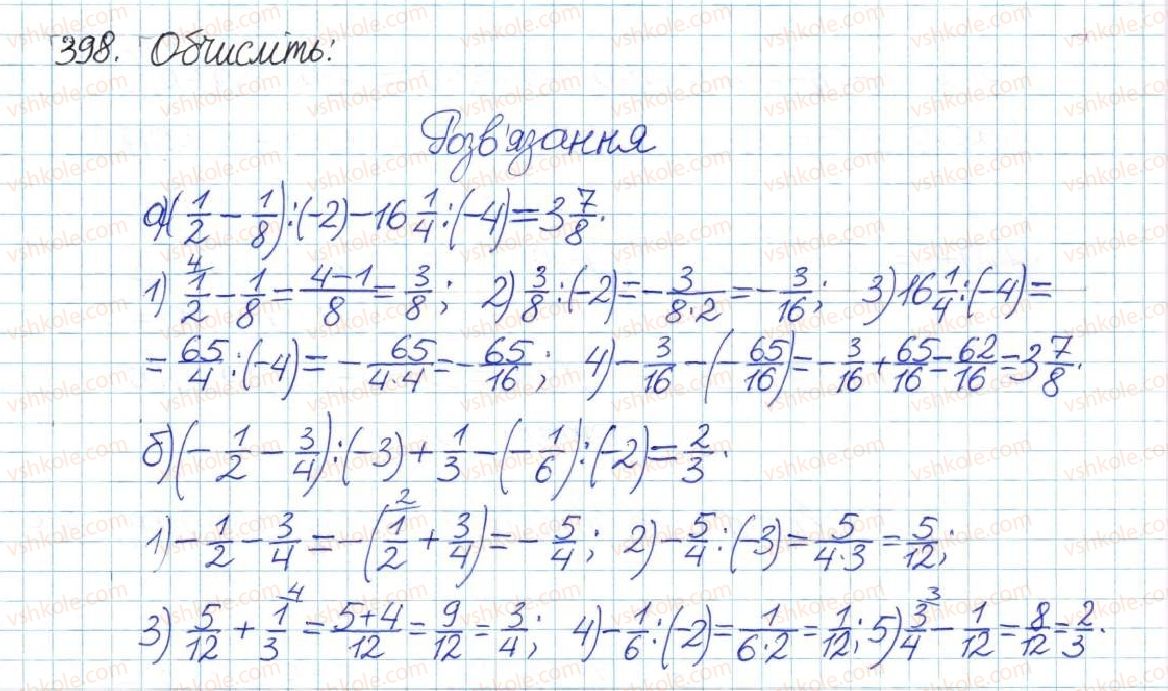 398. Обчисліть:
Розв'язання
а) (1/2 - 1/8) : (-2) - 16 1/4 : (-4) = 3 7/8.
1) 1/2 ⁴ - 1/8 = (4-1)/8 = 3/8; 2) 3/8 : (-2) = - 3/(8·2) = - 3/16; 3) 16 1/4 : (-4) =
= 65/4 : (-4) = - 65/(4·4) = - 65/16; 4) - 3/16 - (- 65/16) = - 3/16 + 65/16 = 62/16 = 3 7/8.
б) (- 1/2 - 3/4) : (-3) + 1/3 - (- 1/6) : (-2) = 2/3.
1) - 1/2 - 3/4 = - (1/2 ² + 3/4) = - 5/4; 2) - 5/4 : (-3) = 5/(4·3) = 5/12;
3) 5/12 + 1/3 ⁴ = (5+4)/12 = 9/12 = 3/4; 4) - 1/6 : (-2) = 1/(6·2) = 1/12; 5) 3/4 ³ - 1/12 = 8/12 = 2/3.
vshkole.com